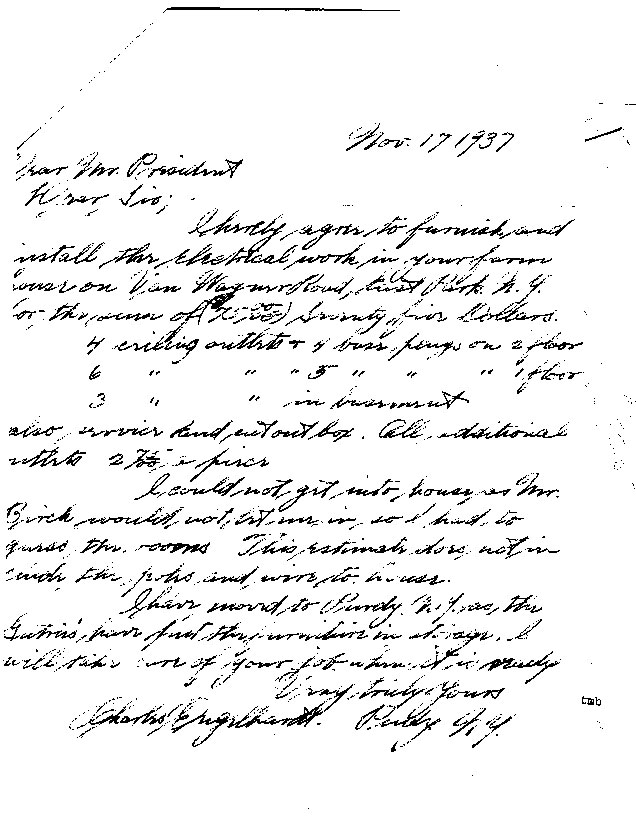 Nov. 17 1937
Dear Mr. President
Dear Sir;
I hereby agree to furnish and
install the electrical work in your farm
house on Van Wagner Road, East Park N.Y.
for the sum of (75 00) Seventy five Dollars.
4 ceiling outlets & 4 base plugs on 2 floor
6 " " " 5 " " " 1 floor
3 " " in basement
also service and cut out box. All additional
outlets 2 a piece
I could not get into house as Mr.
Birch would not let me in, so I had to
guess the rooms This estimate does not in
clude the poles and wire to house.
I have moved to Purdy N.Y. as the
have put the furniture in storage. I
will take care of your job when it is ready
Very truly Yours
Charles Engelhardt. Purdy N.Y.
tmb